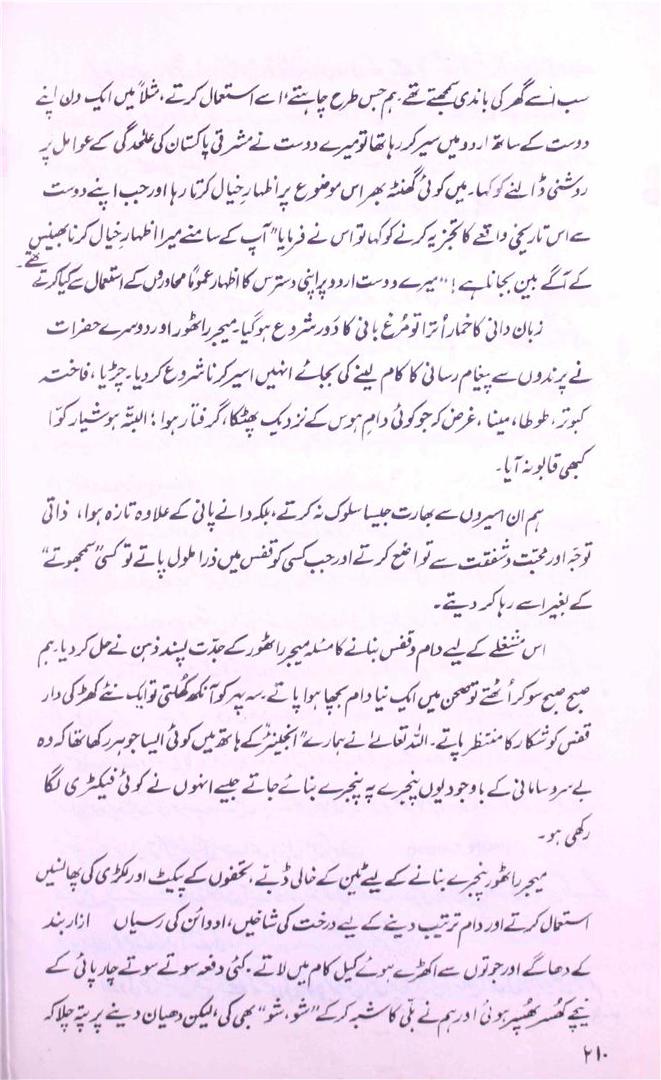 سب اسے گھر کی باندی سمجھتے تھے۔ ہم جس طرح چاہتے، اسے استعمال کرتے، مثلاً میں ایک دن اپنے
دوست کے ساتھ اردو میں سیر کر رہا تھا تو میرے دوست نے مشرقی پاکستان کی علٰحدگی کے عوامل پر
روشنی ڈالنے کو کہا۔ میں کوئی گھنٹہ بھر اس موضوع پر اظہارِ خیال کرتا رہا اور جب اپنے دوست
سے اس تاریخی واقعے کا تجزیہ کرنے کو کہا تو اس نے فرمایا "آپ کے سامنے میرا اظہارِ خیال کرنا بھینس
کے آگے بین بجانا ہے!" میرے دوست اردو پر اپنی دسترس کا اظہار عموماً محاوروں کے استعمال سے کیا کرتے تھے۔
زبان دانی کا خمار اُترا تو مُرغ بانی کا دَور شروع ہو گیا۔ میجر راٹھور اور دوسرے حضرات
نے پرندوں سے پیغام رسانی کا کام لینے کی بجائے انہیں اسیر کرنا شروع کر دیا۔ چڑیا، فاختہ
کبوتر، طوطا، مینا، غرض کہ جو کوئی دامِ ہوس کے نزدیک پھٹکا، گرفتار ہوا؛ البتہ ہوشیار کوّا
کبھی قابو نہ آیا۔
ہم ان اسیروں سے بھارت جیسا سلوک نہ کرتے، بلکہ دانے پانی کے علاوہ تازہ ہوا، ذاتی
توجہ اور محبت و شفقت سے تواضع کرتے اور جب کسی کو قفس میں ذرا ملول پاتے تو کسی "سمجھوتے"
کے بغیر اسے رہا کر دیتے۔
اس مشغلے کے لیے دام و قفس بنانے کا مسئلہ میجر راٹھور کے جدّت پسند ذہن نے حل کر دیا۔ ہم
صبح صبح سو کر اُٹھتے تو صحن میں ایک نیا دام بچھا ہوا پاتے۔ سہ پہر کو آنکھ کُھلتی تو ایک نئے کھڑکی دار
قفس کو شکار کا منتظر پاتے۔ اللہ تعالےٰ نے ہمارے "انجینئر" کے ہاتھ میں کوئی ایسا جوہر رکھا تھا کہ وہ
بے سروسامانی کے باوجود یوں پنجرے پہ پنجرے بنائے جاتے جیسے انہوں نے کوئی فیکٹری لگا
رکھی ہو۔
میجر راٹھور پنجرے بنانے کے لیے ٹین کے خالی ڈبے، تحفوں کے پیکٹ اور لکڑی کی پھانسیں
استعمال کرتے اور دام ترتیب دینے کے لیے درخت کی شاخیں، ادوائن کی رسیاں ازار بند
کے دھاگے اور جوتوں سے اکھڑے ہوئے کیل کام میں لاتے۔ کئی دفعہ سوتے سوتے چارپائی کے
نیچے کُھسر پُھسر ہوئی اور ہم نے بلّی کا شبہ کر کے "شو، شو" بھی کی، لیکن دھیان دینے پر پتہ چلا کہ
۲۱۰